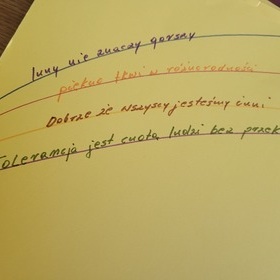 Inny nie znaczy gorszy
piękno tkwi w różnorodność
Dobrze że wszyscy jesteśmy inni
Tolerancja jest cnotą ludzi bez przek